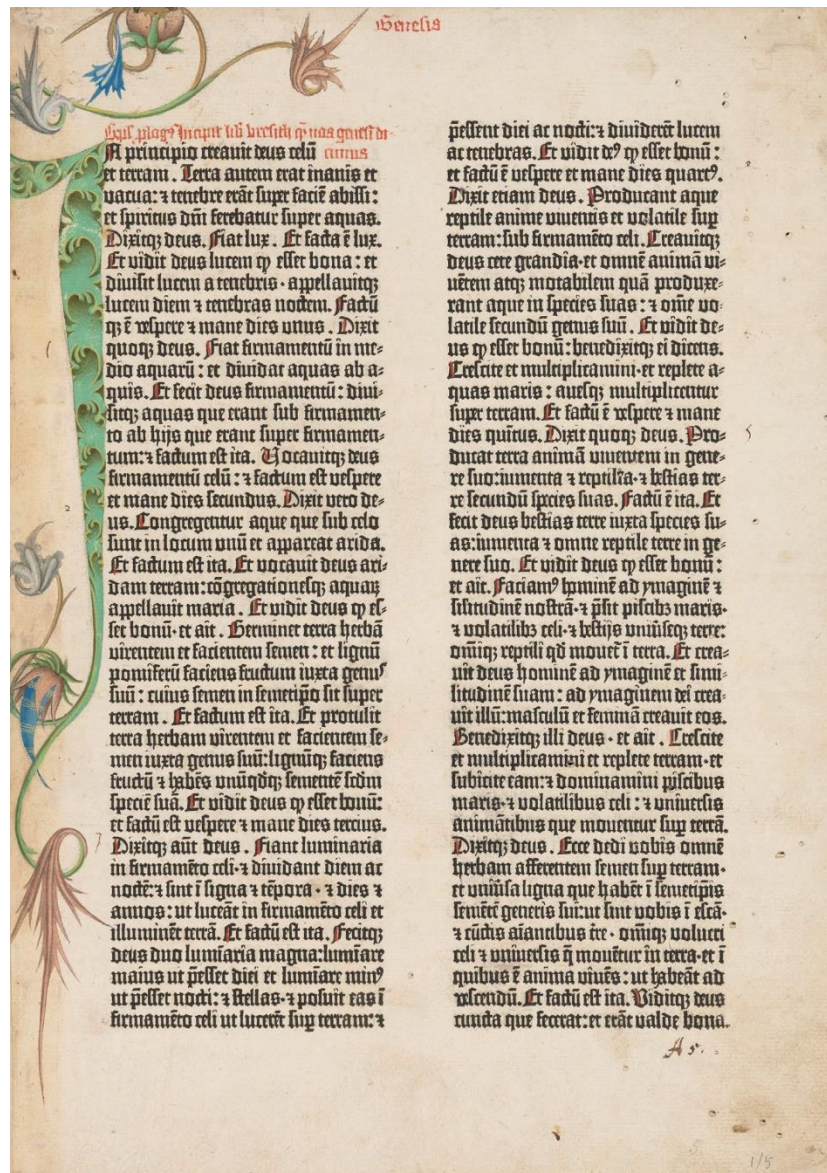 Genesis
Incipit liber bresith quē nos genesim di-
cimus
In principio creavit deus celū
et terram. Terra autem erat inanis et
vacua: ⁊ tenebre erāt super faciē abissi:
et spiritus dñi ferebatur super aquas.
Dixitqꝫ deus. Fiat lux. Et facta ē lux.
Et vidit deus lucem ꝙ esset bona: et
divisit lucem a tenebris· appellavitqꝫ
lucem diem ⁊ tenebras noctem. Factū
qꝫ ē vespere ⁊ mane dies unus. Dixit
quoqꝫ deus. Fiat firmamentū in me-
dio aquarū: et dividat aquas ab a-
quis. Et fecit deus firmamentū: divi-
sitqꝫ aquas que erant sub firmamen-
to ab hijs que erant super firmamen-
tum: ⁊ factum est ita. Vocavitqꝫ deus
firmamentū celū: ⁊ factum est vespere
et mane dies secundus. Dixit vero de-
us. Congregentur aque que sub celo
sunt in locum unū et appareat arida.
Et factum est ita. Et vocavit deus ari-
dam terram: cōgregationesqꝫ aquaꝝ
appellavit maria. Et vidit deus ꝙ es-
set bonū· et ait. Germinet terra herbā
virentem et facientem semen: et lignū
pomiferū faciens fructum iuxta genuꝰ
suū: cuius semen in semetip̄o sit super
terram. Et factum est ita. Et protulit
terra herbam virentem et facientem se-
men iuxta genus suū: lignūqꝫ faciens
fructū ⁊ habēs unūqdqꝫ sementē scdm
speciē suā. Et vidit deus ꝙ esset bonū:
et factū est vespere ⁊ mane dies tercius.
Dixitqꝫ aūt deus. Fiant luminaria
in firmamēto celi· ⁊ dividant diem ac
noctē: ⁊ sint ī signa ⁊ tēpora· ⁊ dies ⁊
annos: ut luceāt in firmamēto celi et
illuminēt terrā. Et factū est ita. Fecitqꝫ
deus duo lumīaria magna: lumīare
maius ut p̄esset diei et lumīare minꝰ
ut p̄esset nocti: ⁊ stellas· ⁊ posuit eas ī
firmamēto celi ut lucerēt sup̄ terram: ⁊
p̄essent diei ac nocti: ⁊ dividerēt lucem
ac tenebras. Et vidit deꝰ ꝙ esset bonū:
et factū ē vespere et mane dies quartꝰ.
Dixit etiam deus. Producant aque
reptile anime viventis et volatile sup̄
terram: sub firmamēto celi. Creavitqꝫ
deus cete grandia· et omnē animā vi-
ventem atqꝫ motabilem quā produxe-
rant aque in species suas: ⁊ omē vo-
latile secundū genus suū. Et vidit de-
us ꝙ esset bonū: benedixitqꝫ ei dicens.
Crescite et multiplicamini· et replete a-
quas maris: avesqꝫ multiplicentur
super terram. Et factū ē vespere ⁊ mane
dies quītus. Dixit quoqꝫ deus. Pro-
ducat terra animā viventem in gene-
re suo: iumenta ⁊ reptilia· ⁊ bestias ter-
re secundū species suas. Factū ē ita. Et
fecit deus bestias terre iuxta species su-
as: iumenta ⁊ omne reptile terre in ge-
nere suo. Et vidit deus ꝙ esset bonū:
et ait. Faciamꝰ hominē ad ymaginē ⁊
silitudinē nostrā· ⁊ p̄sit piscibꝫ maris·
⁊ volatilibꝫ celi· ⁊ bestijs univseqꝫ terre:
omīqꝫ reptili qd movet̄ ī terra. Et crea-
vit deus hominē ad ymaginē et simi-
litudinē suam: ad ymaginem dei crea-
vit illū: masculū et feminā creavit eos.
Benedixitqꝫ illi deus· et ait. Crescite
et multiplicamini et replete terram· et
subicite eam: ⁊ dominamini piscibus
maris· ⁊ volatilibus celi: ⁊ universis
animātibus que moventur sup̄ terrā.
Dixitqꝫ deus. Ecce dedi vobis omnē
herbam afferentem semen sup̄ terram·
et univsa ligna que habēt ī semetip̄is
semētē generis sui: ut sint vobis ī escā·
⁊ cūctis aīantibus tr̄e· omīqꝫ volucri
celi ⁊ universis q̄ movētur in terra· et ī
quibus ē anima vivēs: ut habeāt ad
vescendū. Et factū est ita. Viditqꝫ deus
cuncta que fecerat: et erāt valde bona.
A 5.
1/5